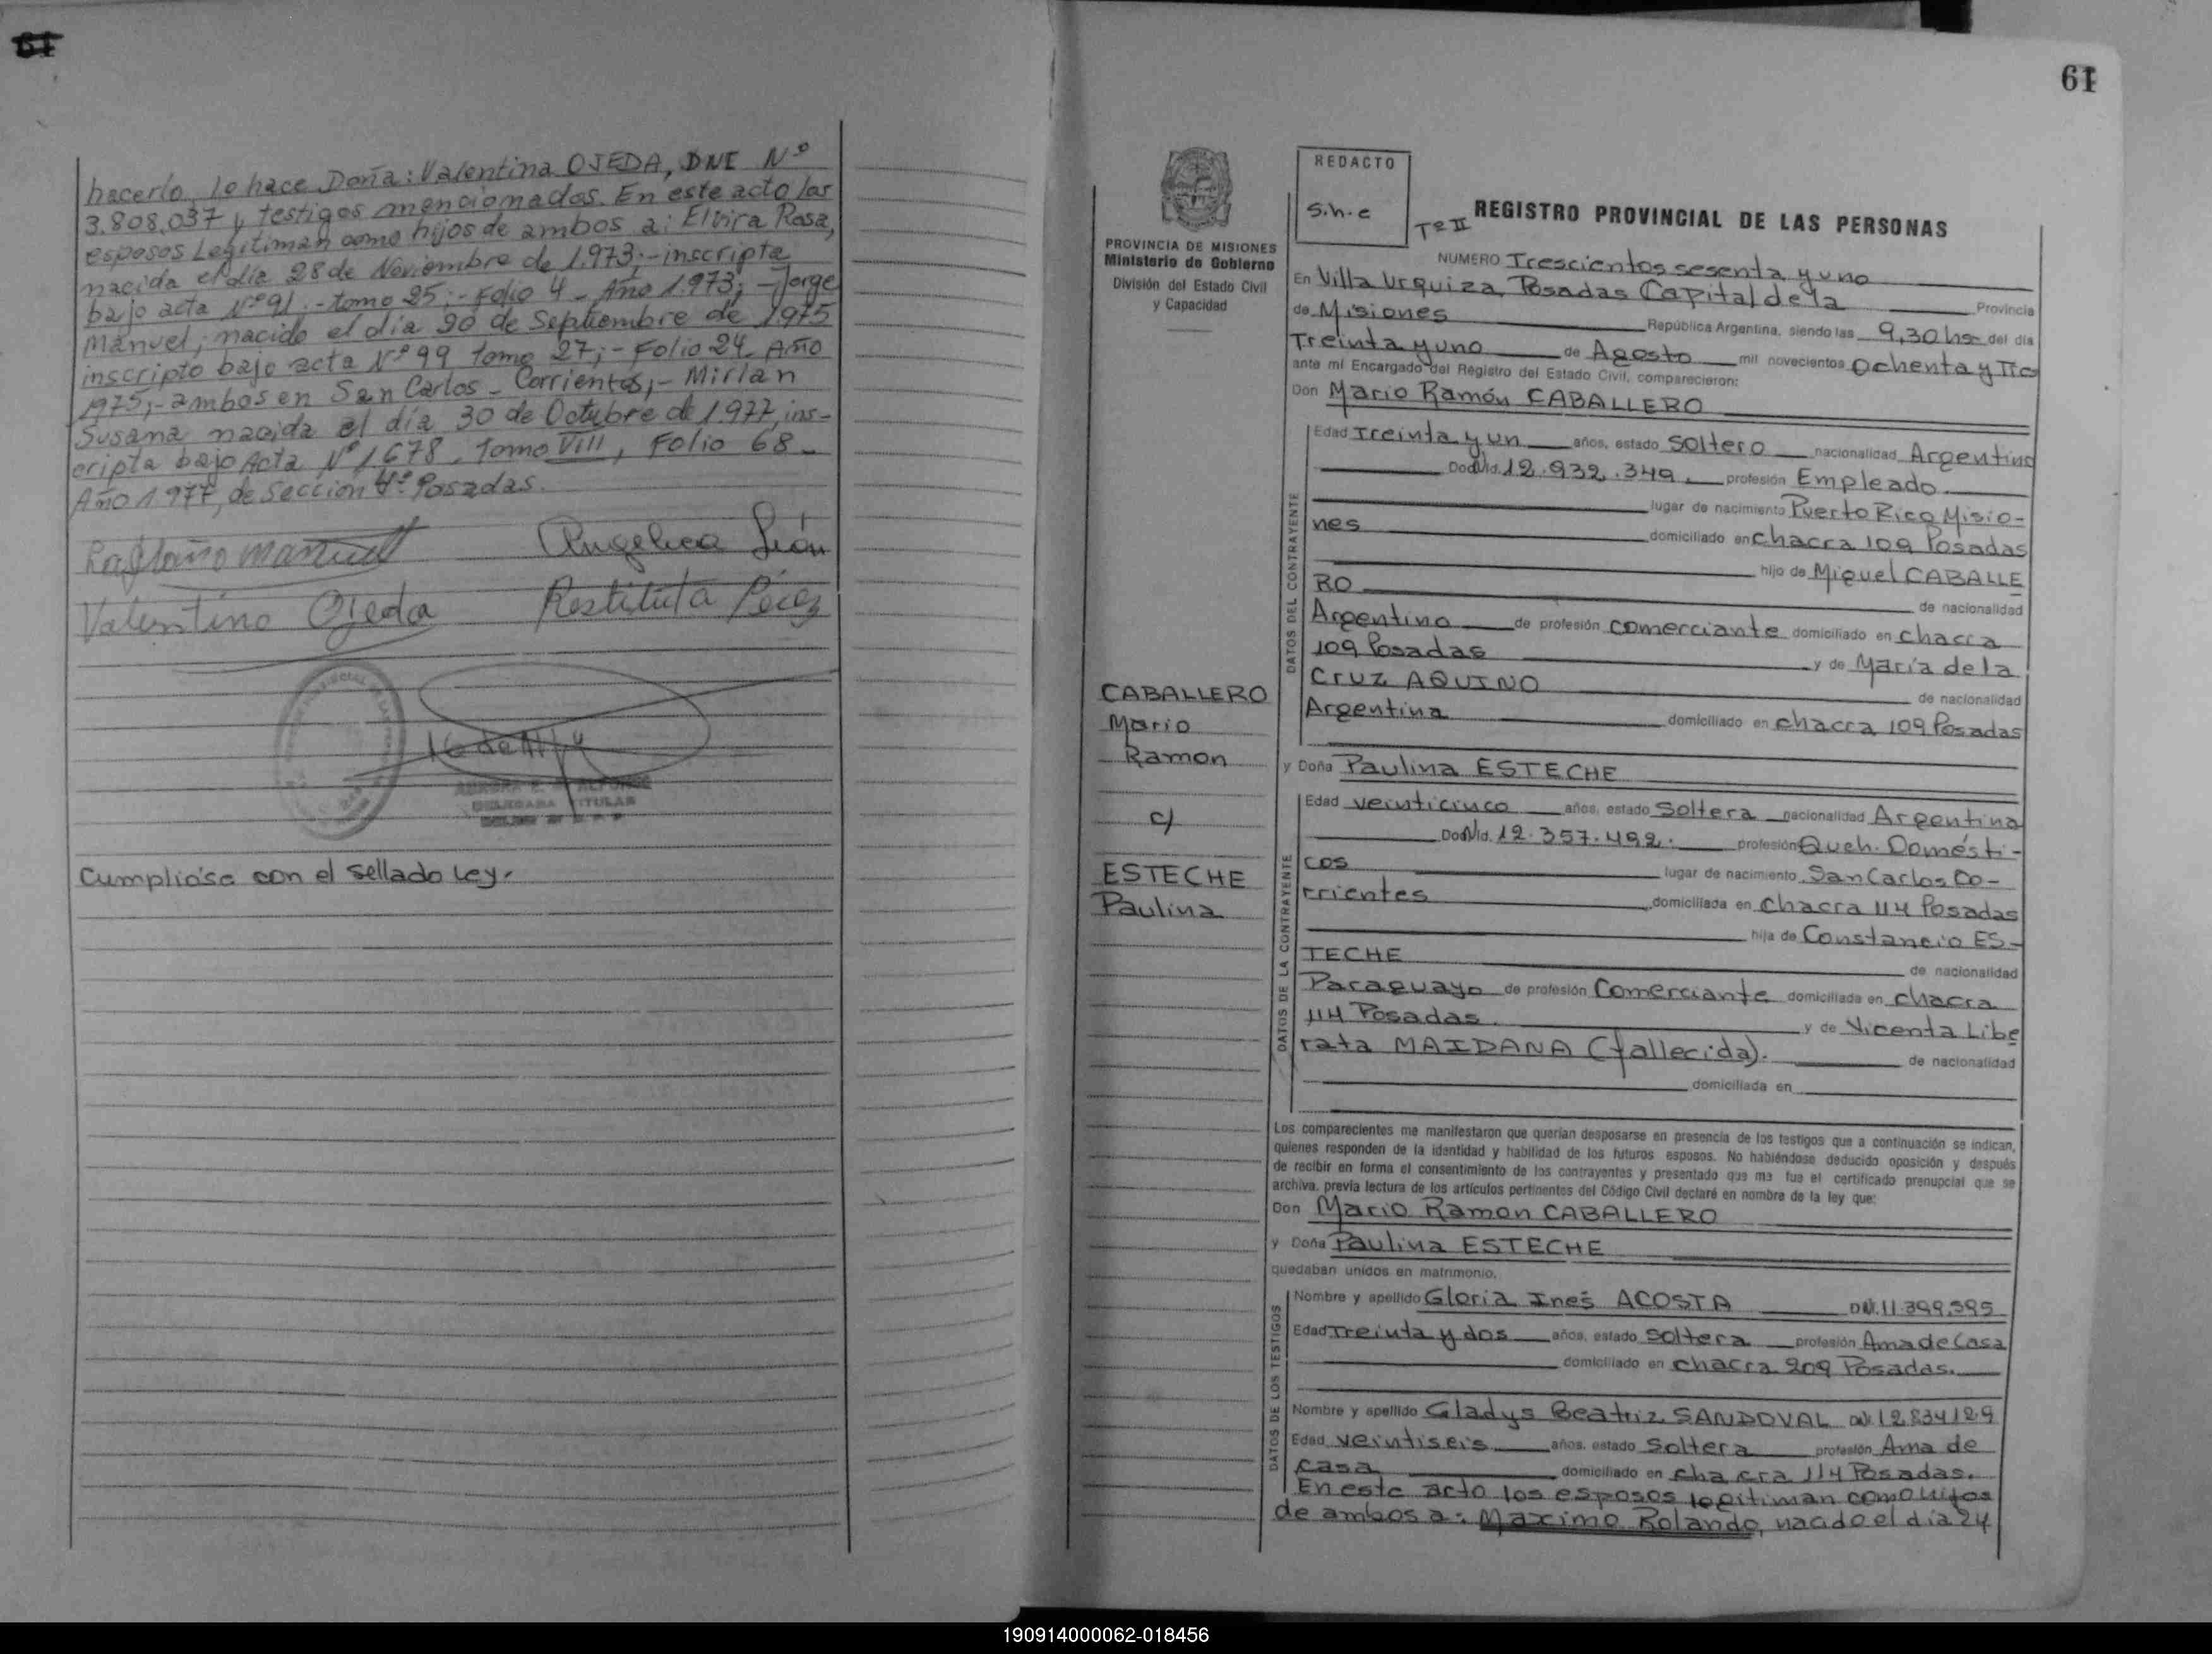 61
hacerlo, lo hace Doña: Valentina OJEDA, DNI Nº
3.808.037 y testigos mencionados. En este acto los
esposos Legitiman como hijos de ambos a: Elvira Rosa,
nacida el día 28 de Noviembre de 1.973;- inscripta
bajo acta Nº 91.- tomo 25;- Folio 4 - Año 1.973; - Jorge
Manuel, nacido el día 20 de Septiembre de 1975
inscripto bajo acta Nº 99 tomo 27;- Folio 24 - Año
1975;- ambos en San Carlos - Corrientes;- Mirian
Susana nacida el día 30 de Octubre de 1.977, ins-
cripta bajo Acta Nº 1.678, Tomo VIII, Folio 68 -
Año 1.977, de Sección 4ª Posadas.
Manuel Angelica León
Valentina Ojeda Restituta Pérez
DELEGADA TITULAR
Cumpliose con el sellado Ley.
61
PROVINCIA DE MISIONES
Ministerio de Gobierno
División del Estado Civil
y Capacidad
CABALLERO
Mario
Ramon
c/
ESTECHE
Paulina
REDACTO
S.h.c
Tº II
REGISTRO PROVINCIAL DE LAS PERSONAS
NUMERO Trescientos sesenta y uno
En Villa Urquiza, Posadas Capital de la Provincia
de Misiones República Argentina, siendo las 9,30 hs del día
Treinta y uno de Agosto mil novecientos Ochenta y Tres
ante mí Encargado del Registro del Estado Civil, comparecieron:
Don Mario Ramón CABALLERO
DATOS DEL CONTRAYENTE
Edad Treinta y un años, estado Soltero nacionalidad Argentino
Doc. Nid. 12.932.349. profesión Empleado
lugar de nacimiento Puerto Rico Misio-
nes domiciliado en Chacra 109 Posadas
hijo de Miguel CABALLE
RO de nacionalidad
Argentino de profesión comerciante domiciliado en chacra
109 Posadas y de María de la
Cruz AQUINO de nacionalidad
Argentina domiciliado en chacra 109 Posadas
y Doña Paulina ESTECHE
DATOS DE LA CONTRAYENTE
Edad veinticinco años, estado Soltera nacionalidad Argentina
Doc. Nid. 12.357.492. profesión Queh. Domésti-
cos lugar de nacimiento San Carlos Co-
rrientes domiciliada en Chacra 114 Posadas
hija de Constancio ES-
TECHE de nacionalidad
Paraguayo de profesión Comerciante domiciliada en chacra
114 Posadas. y de Vicenta Libe
rata MAIDANA (fallecida). de nacionalidad
domiciliada en
Los comparecientes me manifestaron que querían desposarse en presencia de los testigos que a continuación se indican,
quienes responden de la identidad y habilidad de los futuros esposos. No habiéndose deducido oposición y después
de recibir en forma el consentimiento de los contrayentes y presentado que me fue el certificado prenupcial que se
archiva, previa lectura de los artículos pertinentes del Código Civil declaré en nombre de la ley que:
Don Mario Ramon CABALLERO
y Doña Paulina ESTECHE
quedaban unidos en matrimonio.
DATOS DE LOS TESTIGOS
Nombre y apellido Gloria Inés ACOSTA DNI. 11.399.595
Edad Treinta y dos años, estado Soltera profesión Ama de Casa
domiciliado en chacra 209 Posadas.
Nombre y apellido Gladys Beatriz SANDOVAL DNI 12834129
Edad veintiseis años, estado Soltera profesión Ama de
casa domiciliado en chacra 114 Posadas.
En este acto los esposos legitiman como hijos
de ambos a: Maximo Rolando, nacido el día 24
190914000062-018456